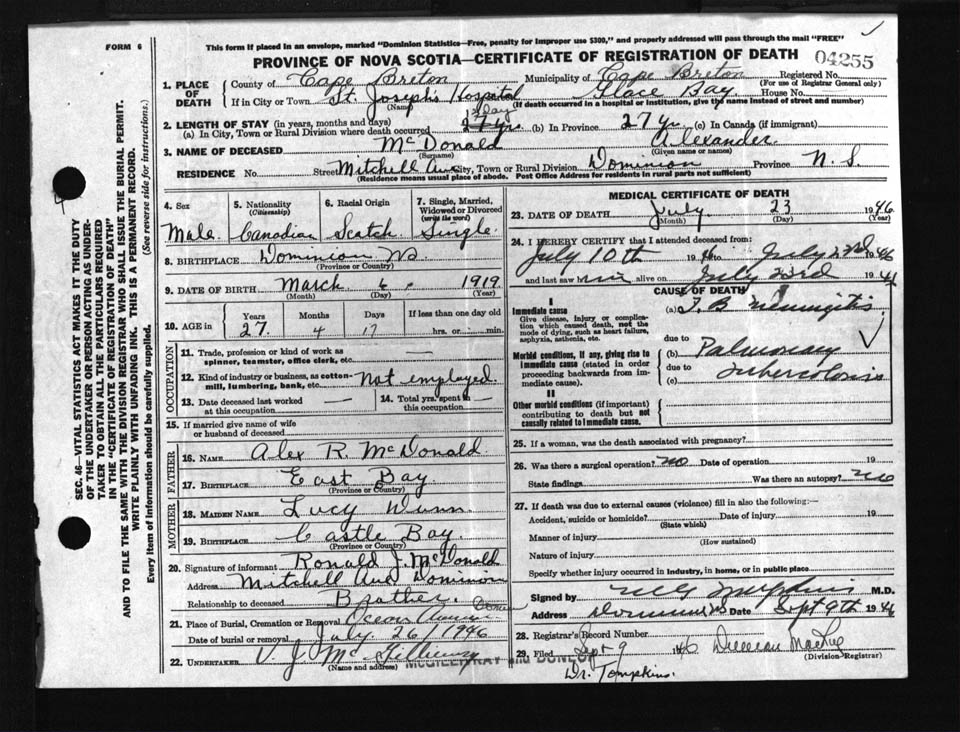 FORM 6
This form if placed in an envelope, marked "Dominion Statistics—Free, penalty for improper use $300," and properly addressed will pass through the mail "FREE"
PROVINCE OF NOVA SCOTIA—CERTIFICATE OF REGISTRATION OF DEATH
04255
1. PLACE OF DEATH
County of Cape Breton Municipality of Cape Breton Registered No.
(For use of Registrar General only)
If in City or Town St. Joseph's Hospital Glace Bay. House No.
(Name) (If death occurred in a hospital or institution, give the name instead of street and number)
2. LENGTH OF STAY (in years, months and days)
(a) In City, Town or Rural Division where death occurred (b) In Province 27 yr. (c) In Canada (if immigrant)
3. NAME OF DECEASED McDonald Alexander.
(Surname) (Given name or names)
RESIDENCE No. Street Mitchell Ave City, Town or Rural Division Dominion Province N. S.
(Residence means usual place of abode. Post Office Address for residents in rural parts not sufficient)
4. Sex
Male
5. Nationality
(Citizenship)
Canadian
6. Racial Origin
Scotch
7. Single, Married, Widowed or Divorced
(write the word)
Single.
8. BIRTHPLACE Dominion NS
(Province or Country)
9. DATE OF BIRTH March 6, 1919
(Month) (Day) (Year)
10. AGE in
Years Months Days If less than one day old
27. 4 17 hrs. or min.
OCCUPATION
11. Trade, profession or kind of work as spinner, teamster, office clerk, etc. —
12. Kind of industry or business, as cotton-mill, lumbering, bank, etc. Not employed.
13. Date deceased last worked at this occupation —
14. Total yrs. spent in this occupation —
15. If married give name of wife or husband of deceased
FATHER
16. NAME Alex R. McDonald
17. BIRTHPLACE East Bay
(Province or Country)
MOTHER
18. MAIDEN NAME Lucy
19. BIRTHPLACE Castle Bay.
(Province or Country)
20. Signature of informant Ronald J. McDonald
Address Mitchell Ave Dominion
Relationship to deceased Brother.
21. Place of Burial, Cremation or Removal
Date of burial or removal July. 26/1946
22. UNDERTAKER V. J. McGillivray
(Name and address)
McGILLIVRAY and DUNLOP
MEDICAL CERTIFICATE OF DEATH
23. DATE OF DEATH July 23 1946
(Month) (Day) (Year)
24. I HEREBY CERTIFY that I attended deceased from:
July 10th 1946 to July 23rd 1946
and last saw him alive on July 23rd 1946
CAUSE OF DEATH
I
Immediate cause
Give disease, injury or complication which caused death, not the mode of dying, such as heart failure, asphyxia, asthenia, etc.
(a) T. B. Meningitis
due to
Morbid conditions, if any, giving rise to immediate cause (stated in order proceeding backwards from immediate cause).
(b) Pulmonary
due to
(c) Tuberculosis
II
Other morbid conditions (if important) contributing to death but not causally related to immediate cause.
25. If a woman, was the death associated with pregnancy?
26. Was there a surgical operation? no Date of operation 19
State findings Was there an autopsy? no
27. If death was due to external causes (violence) fill in also the following:—
Accident, suicide or homicide? Date of injury 19
(State which)
Manner of injury
(How sustained)
Nature of injury
Specify whether injury occurred in industry, in home, or in public place
Signed by M.D.
Address Dominion Date Sept 9th 1946
28. Registrar's Record Number
29. Filed Sept 9 1946 Duncan
(Division Registrar)
Dr. Tompkins.
SEC. 46—VITAL STATISTICS ACT MAKES IT THE DUTY
OF THE UNDERTAKER OR PERSON ACTING AS UNDER-
TAKER TO OBTAIN ALL THE PARTICULARS REQUIRED
IN THE "CERTIFICATE OF REGISTRATION OF DEATH"
AND TO FILE THE SAME WITH THE DIVISION REGISTRAR WHO SHALL ISSUE THE BURIAL PERMIT.
WRITE PLAINLY WITH UNFADING INK. THIS IS A PERMANENT RECORD.
Every item of information should be carefully supplied. (See reverse side for instructions.)